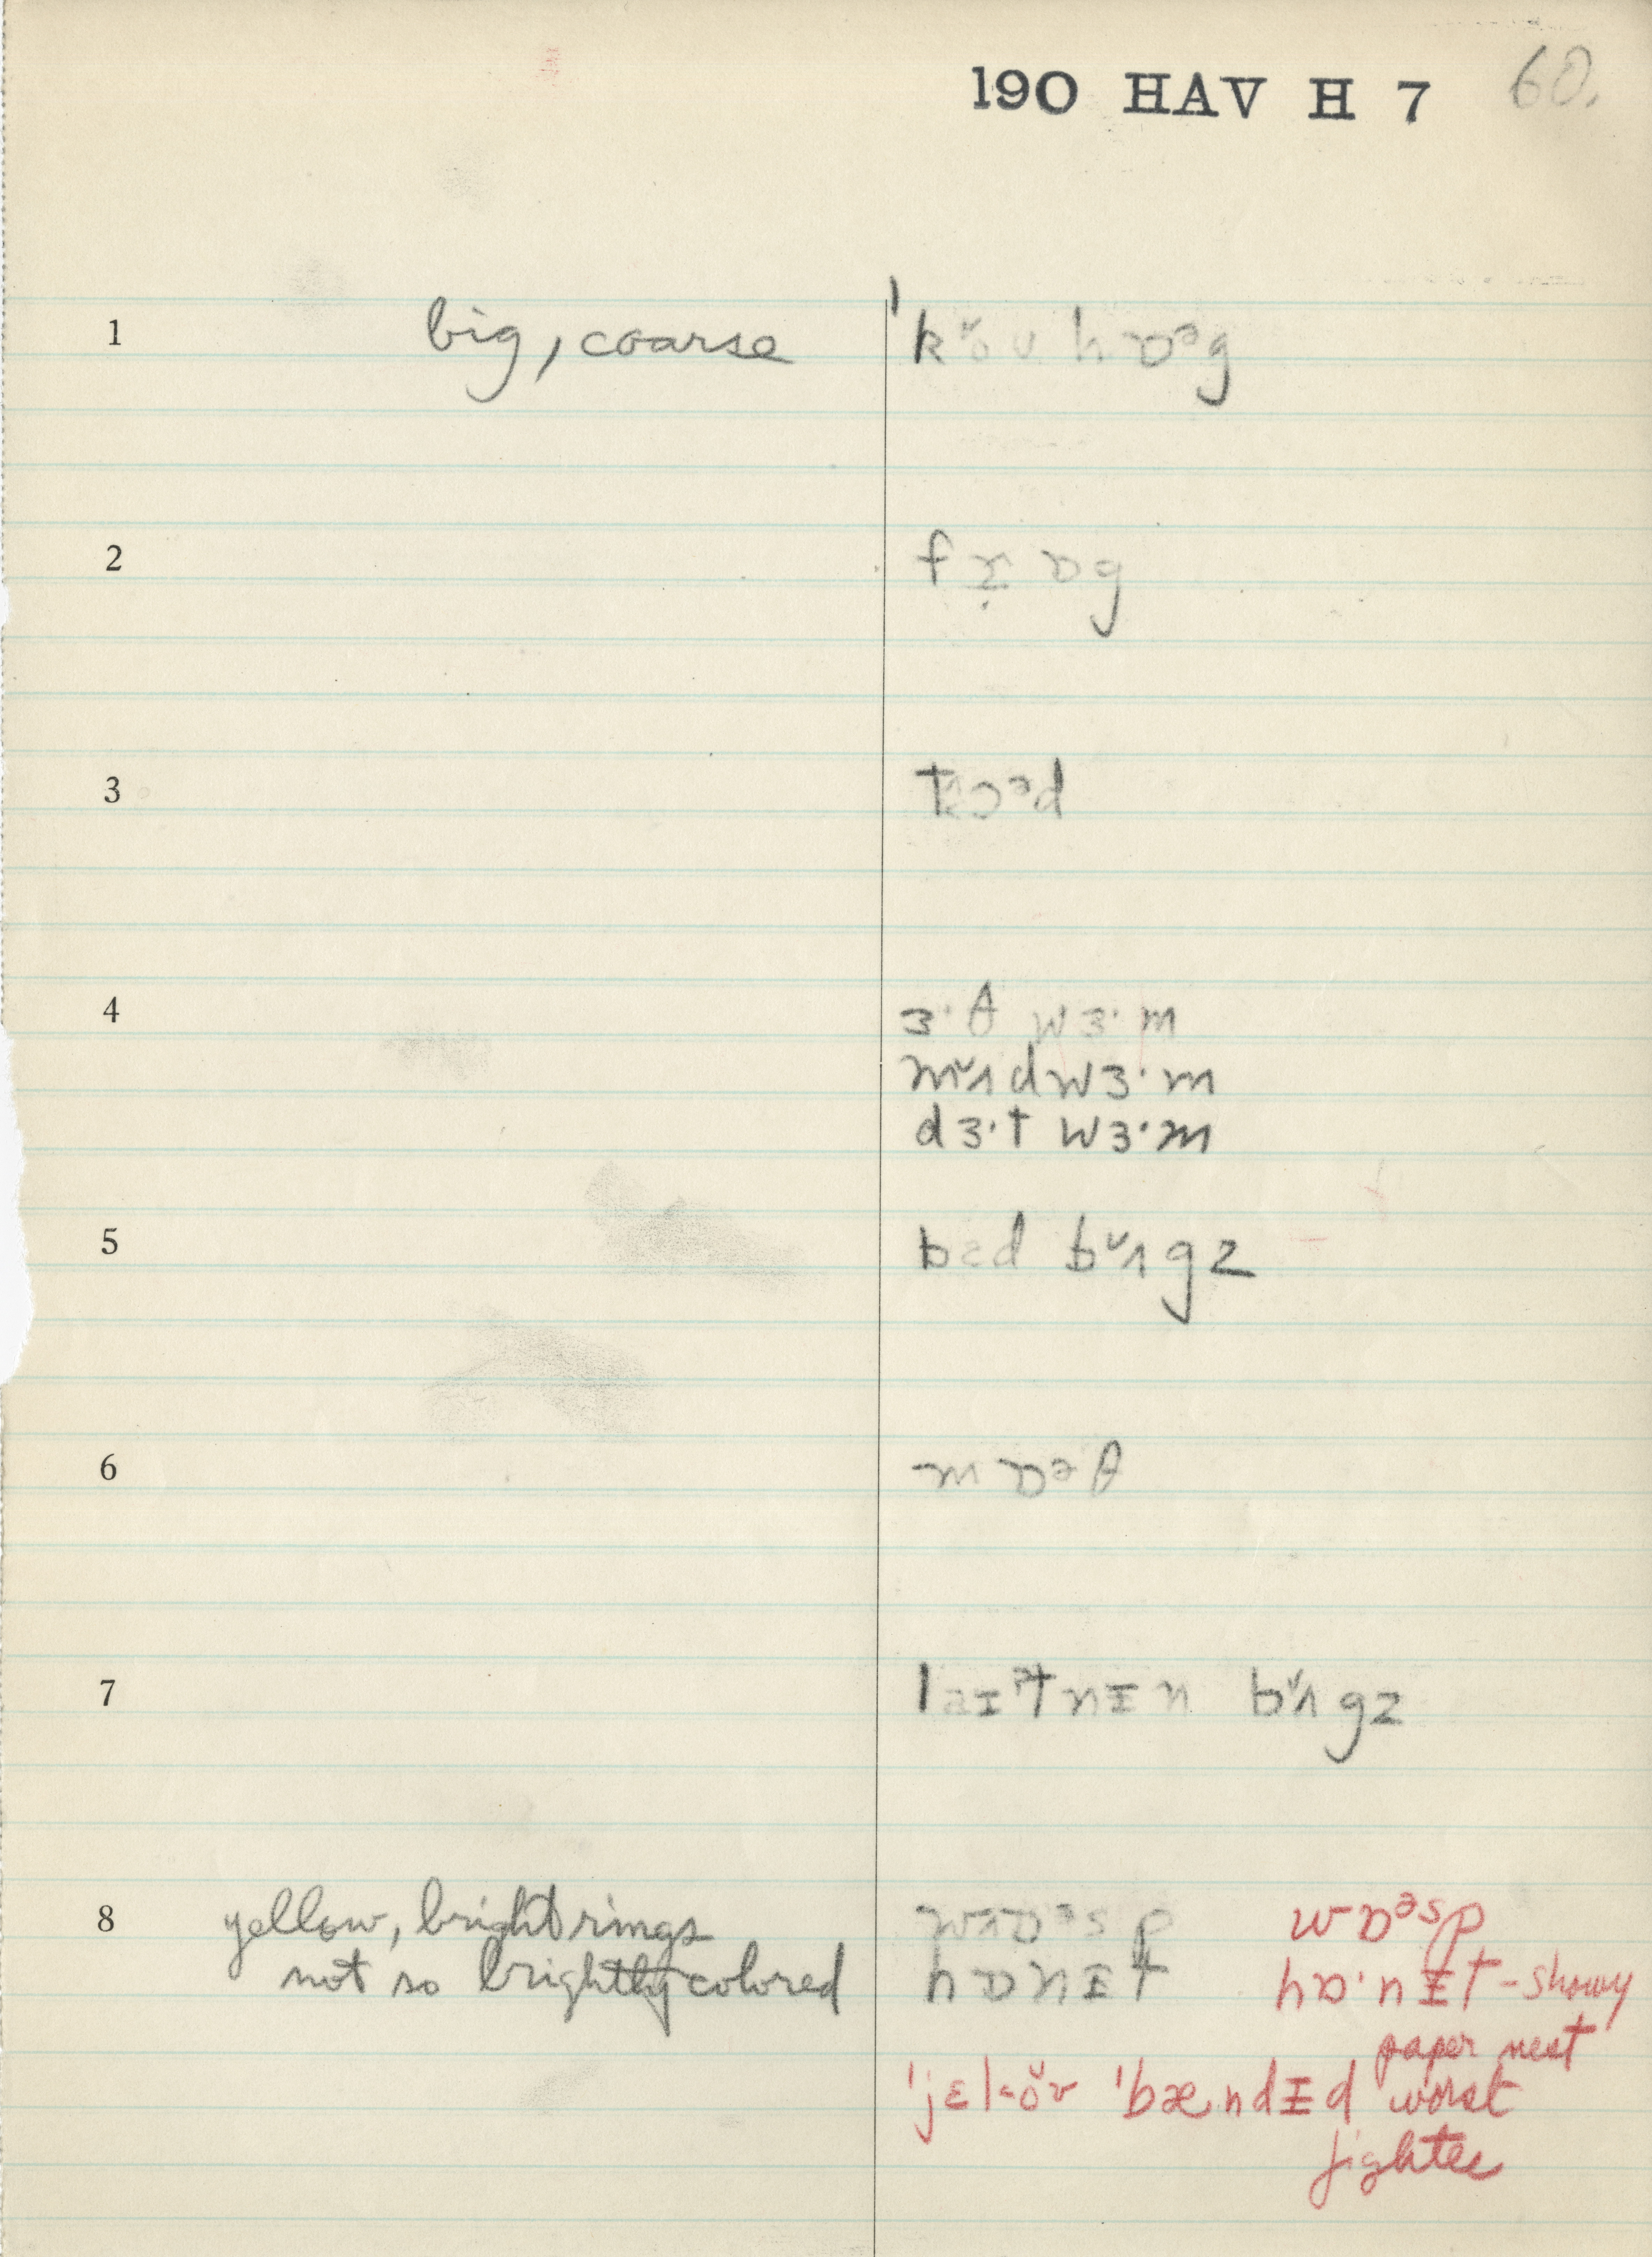 190 HAV H 7 60.
1 big, coarse ˈkoʊ hɒᵊg
2 frɒg
3 tɔᵊd
4 ɜ·θ wɜ·m
mʌd wɜ·m
dɜ·t wɜ·m
5 bɛd bʌgz
6 mɒᵊθ
7 laɪᵊtnɪn bʌgz
8 yellow, bright rings wɒᵊsp wɒᵊsp
not so brightly colored hɒnɪt hɒ·nɪt - showy
paper nest
ˈjɛl-oʊ ˈbændɪd worst
fighter